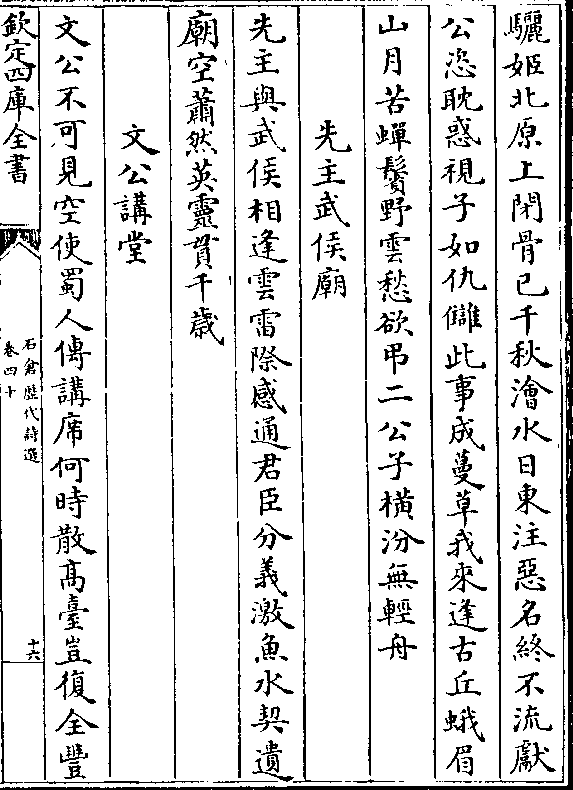 驪姬北原上閉骨已千秋澮水日東注惡名終不流獻
公恣耽惑視子如仇讎此事成蔓草我來逢古丘蛾眉
山月苦蟬鬢野雲愁欲弔二公子橫汾無輕舟
先主武侯廟
先主與武侯相逢雲雷際感通君臣分義激魚水契遺
廟空蕭然英靈貫千歳
文公講堂
文公不可見空使蜀人傳講席何時散髙臺豈復全豐
欽定四庫全書
石倉歴代詩選
卷四十
十六